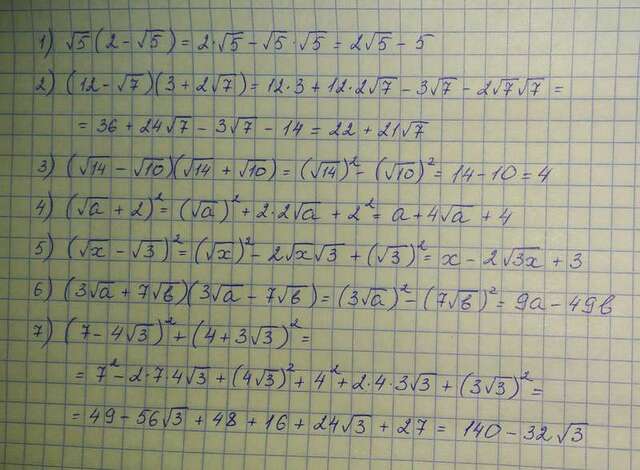 1) √5(2-√5) = 2·√5-√5·√5 = 2√5-5
2) (12-√7)(3+2√7) = 12·3+12·2√7-3√7-2√7√7 =
= 36+24√7-3√7-14 = 22+21√7
3) (√14-√10)(√14+√10) = (√14)²-(√10)² = 14-10 = 4
4) (√a+2)² = (√a)²+2·2√a+2² = a+4√a+4
5) (√x-√3)² = (√x)²-2√x√3+(√3)² = x-2√3x+3
6) (3√a+7√b)(3√a-7√b) = (3√a)²-(7√b)² = 9a-49b
7) (7-4√3)²+(4+3√3)² =
= 7²-2·7·4√3+(4√3)²+4²+2·4·3√3+(3√3)² =
= 49-56√3+48+16+24√3+27 = 140-32√3